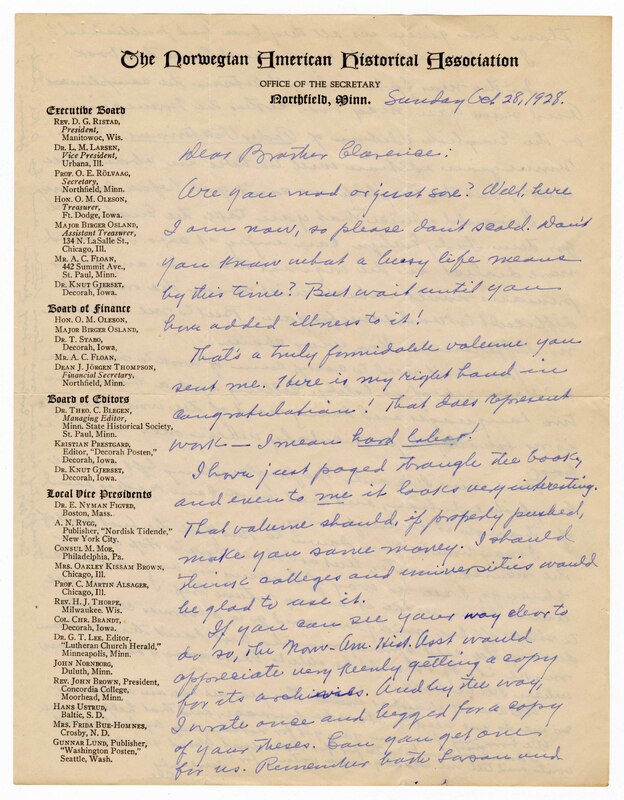 The Norwegian American Historical Association
OFFICE OF THE SECRETARY
Northfield, Minn.
Sunday Oct 28, 1928.
Executive Board
REV. D. G. RISTAD,
President,
Manitowoc, Wis.
DR. L. M. LARSEN,
Vice President,
Urbana, Ill.
PROF. O. E. RÖLVAAG,
Secretary,
Northfield, Minn.
HON. O. M. OLESON,
Treasurer,
Ft. Dodge, Iowa.
MAJOR BIRGER OSLAND,
Assistant Treasurer,
134 N. LaSalle St.,
Chicago, Ill.
MR. A. C. FLOAN,
442 Summit Ave.,
St. Paul, Minn.
DR. KNUT GJERSET,
Decorah, Iowa.
Board of Finance
HON. O. M. OLESON,
MAJOR BIRGER OSLAND,
DR. T. STABO,
Decorah, Iowa.
MR. A. C. FLOAN,
DEAN J. JÖRGEN THOMPSON,
Financial Secretary,
Northfield, Minn.
Board of Editors
DR. THEO. C. BLEGEN,
Managing Editor,
Minn. State Historical Society,
St. Paul, Minn.
KRISTIAN PRESTGARD,
Editor, "Decorah Posten,"
Decorah, Iowa.
DR. KNUT GJERSET,
Decorah, Iowa.
Local Vice Presidents
DR. E. NYMAN FIGVED,
Boston, Mass.
A. N. RYGG,
Publisher, "Nordisk Tidende,"
New York City.
CONSUL M. MOE,
Philadelphia, Pa.
MRS. OAKLEY KISSAM BROWN,
Chicago, Ill.
PROF. C. MARTIN ALSAGER,
Chicago, Ill.
REV. H. J. THORPE,
Milwaukee, Wis.
COL. CHR. BRANDT,
Decorah, Iowa.
DR. G. T. LEE, Editor,
"Lutheran Church Herald,"
Minneapolis, Minn.
JOHN NORNBORG,
Duluth, Minn.
REV. JOHN BROWN, President,
Concordia College,
Moorhead, Minn.
HANS USTRUD,
Baltic, S. D.
MRS. FRIDA BUE-HOMNES,
Crosby, N. D.
GUNNAR LUND, Publisher,
"Washington Posten,"
Seattle, Wash.
Dear Brother Clarence:
Are you mad or just sore? Well, here
I am now, so please don't scold. Don't
you know what a busy life means
by this time? But wait until you
have added illness to it!
That's a truly formidable volume you
sent me. There is my right hand in
congratulation! That does represent
work — I mean hard labor!
I have just paged through the book,
and even to me it looks very interesting.
That volume should, if properly pushed,
make you some money. I should
think colleges and universities would
be glad to use it.
If you can see your way clear to
do so, the Norw-Am. Hist. Asst would
appreciate very keenly getting a copy
for its archives. And by the way,
I wrote once and begged for a copy
of your theses. Can you get one
for us. Remember both Larson and